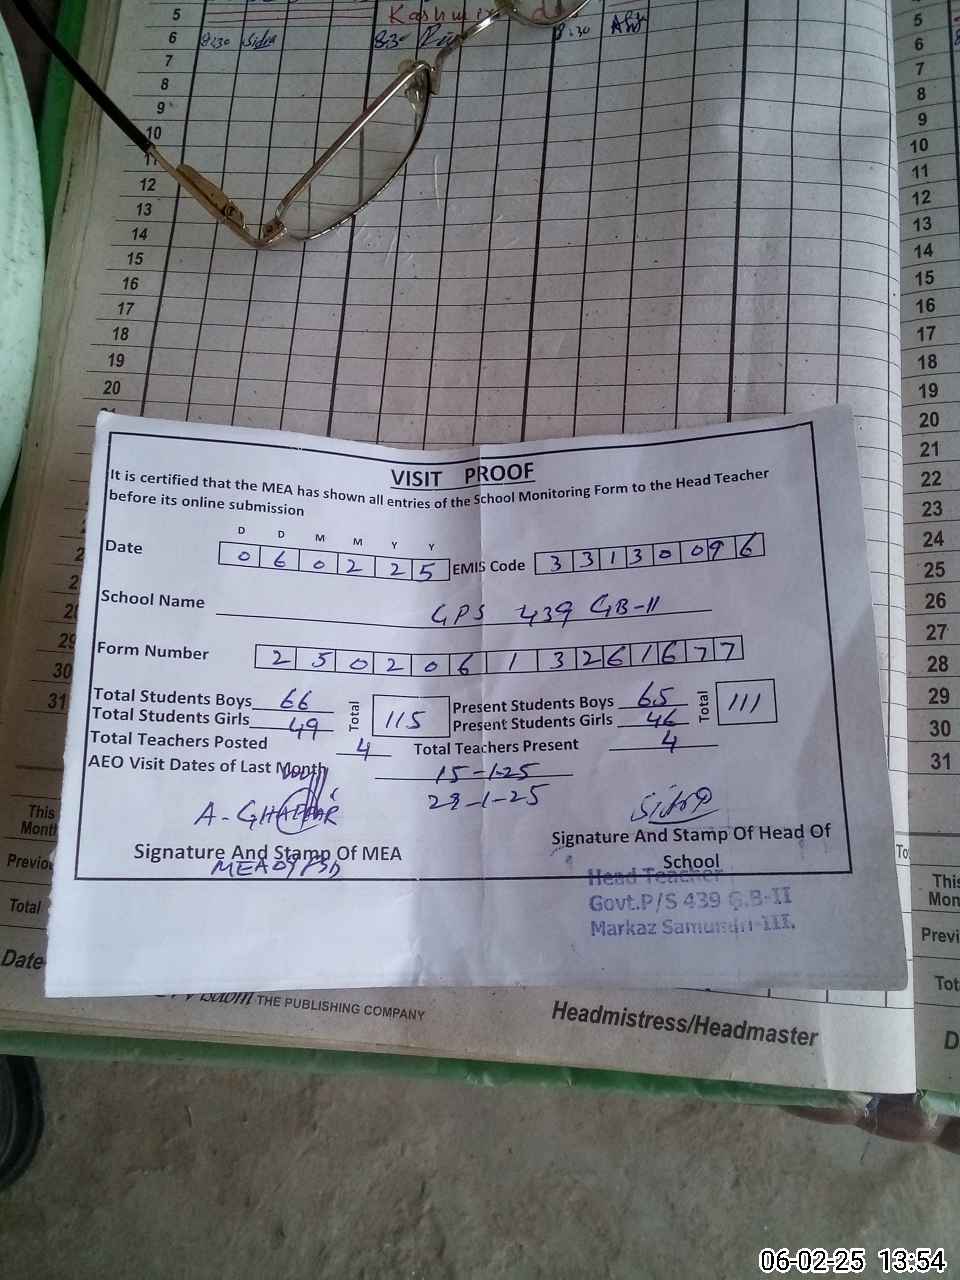 5 Kashmir 5
6 8:30 Sidra 8:30 8:30 6
7 7
8 8
9 9
10 10
11 11
12 12
13 13
14 14
15 15
16 16
17 17
18 18
19 19
20 20
21
22
23
24
25
26
27
29 28
30 29
31 30
31
VISIT PROOF
It is certified that the MEA has shown all entries of the School Monitoring Form to the Head Teacher
before its online submission
D D M M Y Y
Date 0 6 0 2 2 5 EMIS Code 3 3 1 3 0 0 9 6
School Name GPS 439 GB-II
Form Number 2 5 0 2 0 6 1 3 2 6 1 6 7 7
Total Students Boys 66 Total 115 Present Students Boys 65 Total 111
Total Students Girls 49 Present Students Girls 46
Total Teachers Posted 4 Total Teachers Present 4
AEO Visit Dates of Last Month 15-1-25
28-1-25
A-GHAFFAR Sidra
Signature And Stamp Of MEA Signature And Stamp Of Head Of
School
Head Teacher
Govt.P/S 439 G.B-II
Markaz Samundri-III.
This
Month
Total
Date
THE PUBLISHING COMPANY
Headmistress/Headmaster
This
Previ
Tot
D
06-02-25 13:54